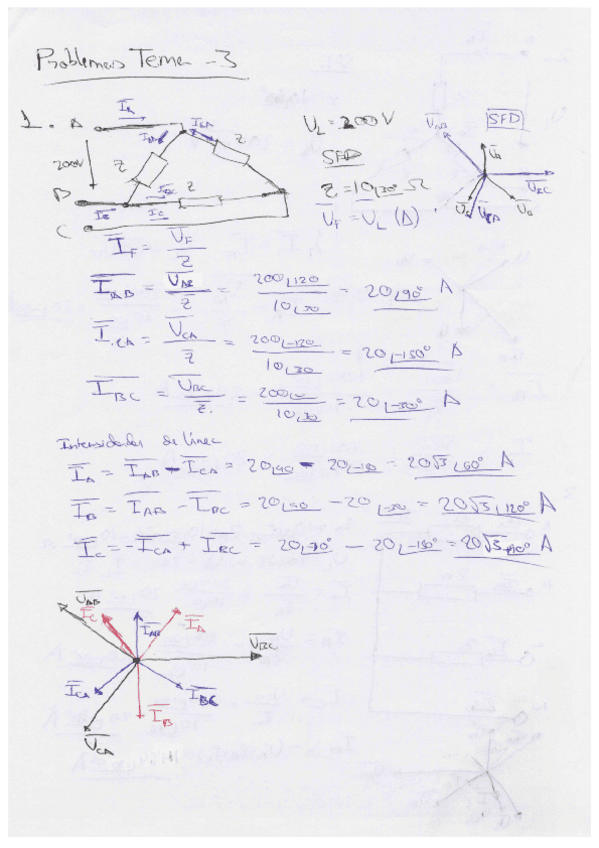 Problemas Tema -3
1. A
I̅A
IAB
ICA
Z
Z
200V
B
IB
IC
IBC
Z
C
UL = 200V
SFD
Z = 10∟30° Ω
U̅F = U̅L (Δ)
SFD
U̅AB
U̅A
U̅BC
U̅C
U̅CA
U̅B
I̅F = U̅F / Z̅
I̅AB = U̅AB / Z̅ = 200∟120 / 10∟30 = 20∟90° A
I̅CA = U̅CA / Z̅ = 200∟-120 / 10∟30 = 20∟-150° A
I̅BC = U̅BC / Z̅ = 200∟0 / 10∟30 = 20∟-30° A
Intensidades de línea
I̅A = I̅AB - I̅CA = 20∟90 - 20∟-150 = 20√3∟60° A
I̅B = I̅AB - I̅BC = 20∟90 - 20∟-30 = 20√3∟120° A
I̅C = -I̅CA + I̅BC = 20∟-30° - 20∟-150° = 20√3 A
U̅AB
I̅C
I̅AB
I̅A
U̅BC
I̅CA
I̅BC
I̅B
U̅CA